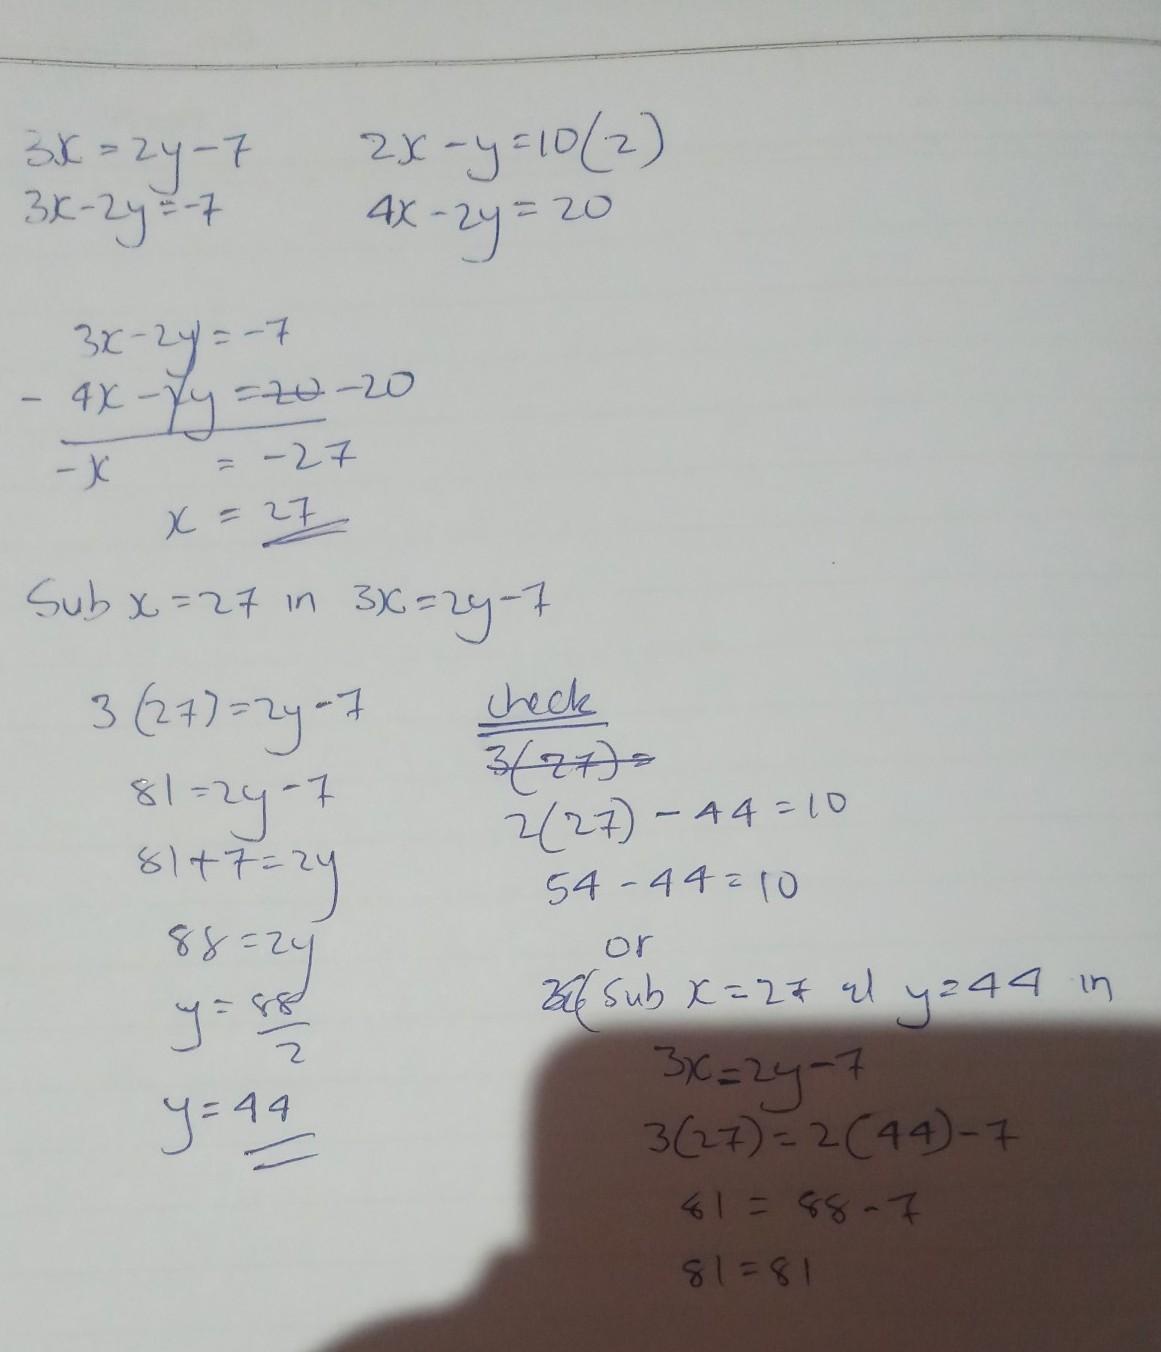 3x=2y-7 2x-y=10(2)
3x-2y=-7 4x-2y=20
3x-2y=-7
- 4x-2y=20 -20
-x = -27
x = 27
Sub x=27 in 3x=2y-7
3(27)=2y-7
81=2y-7
81+7=2y
88=2y
y=88
2
y=44
check
3(27)=
2(27)-44=10
54-44=10
or
Sub x=27 y=44 in
3x=2y-7
3(27)=2(44)-7
81=88-7
81=81